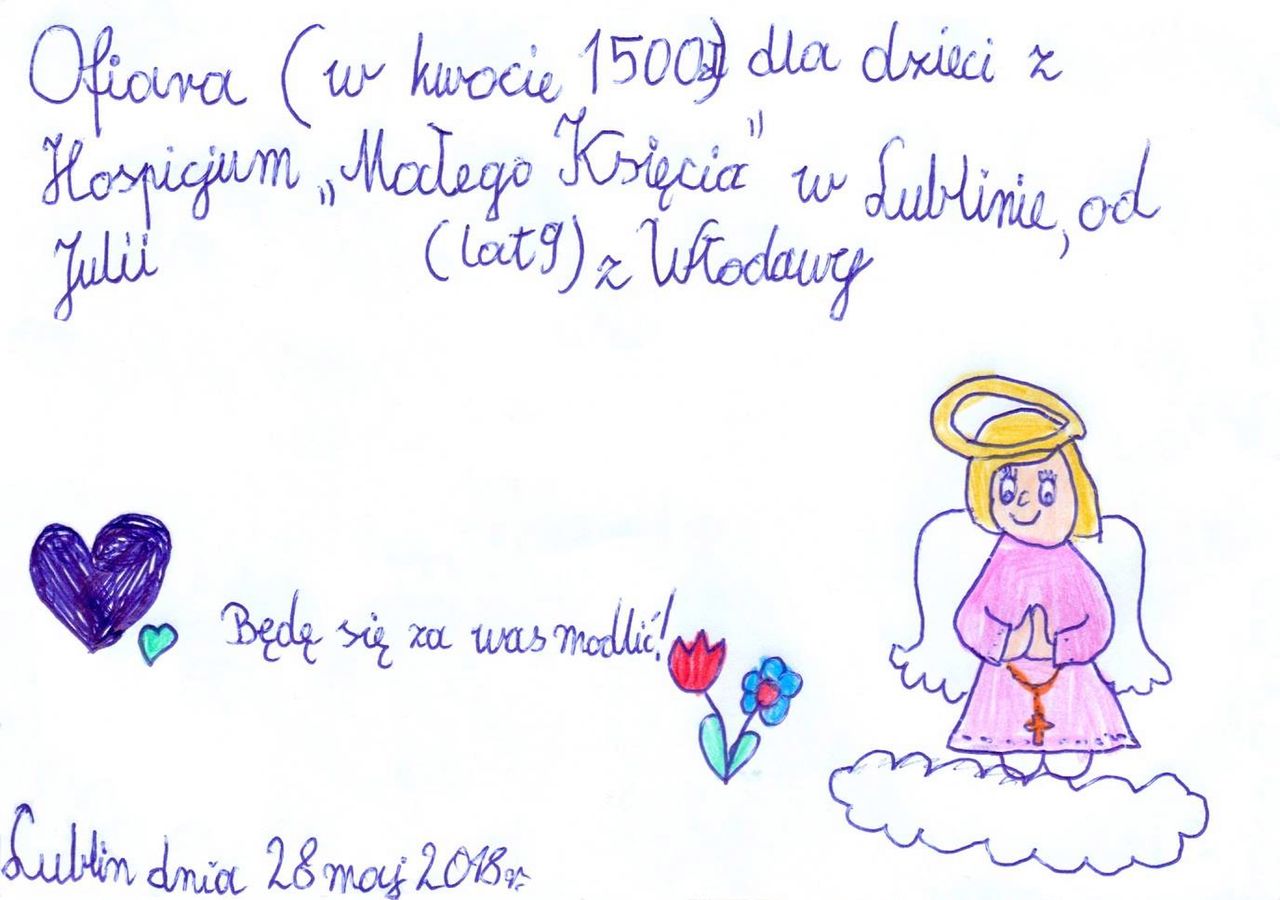 Ofiara (w kwocie 1500zł) dla dzieci z
Hospicjum „Małego Księcia” w Lublinie, od
Julii (lat 9) z Włodawy
Będę się za was modlić!
Lublin dnia 28 maj 2018r.